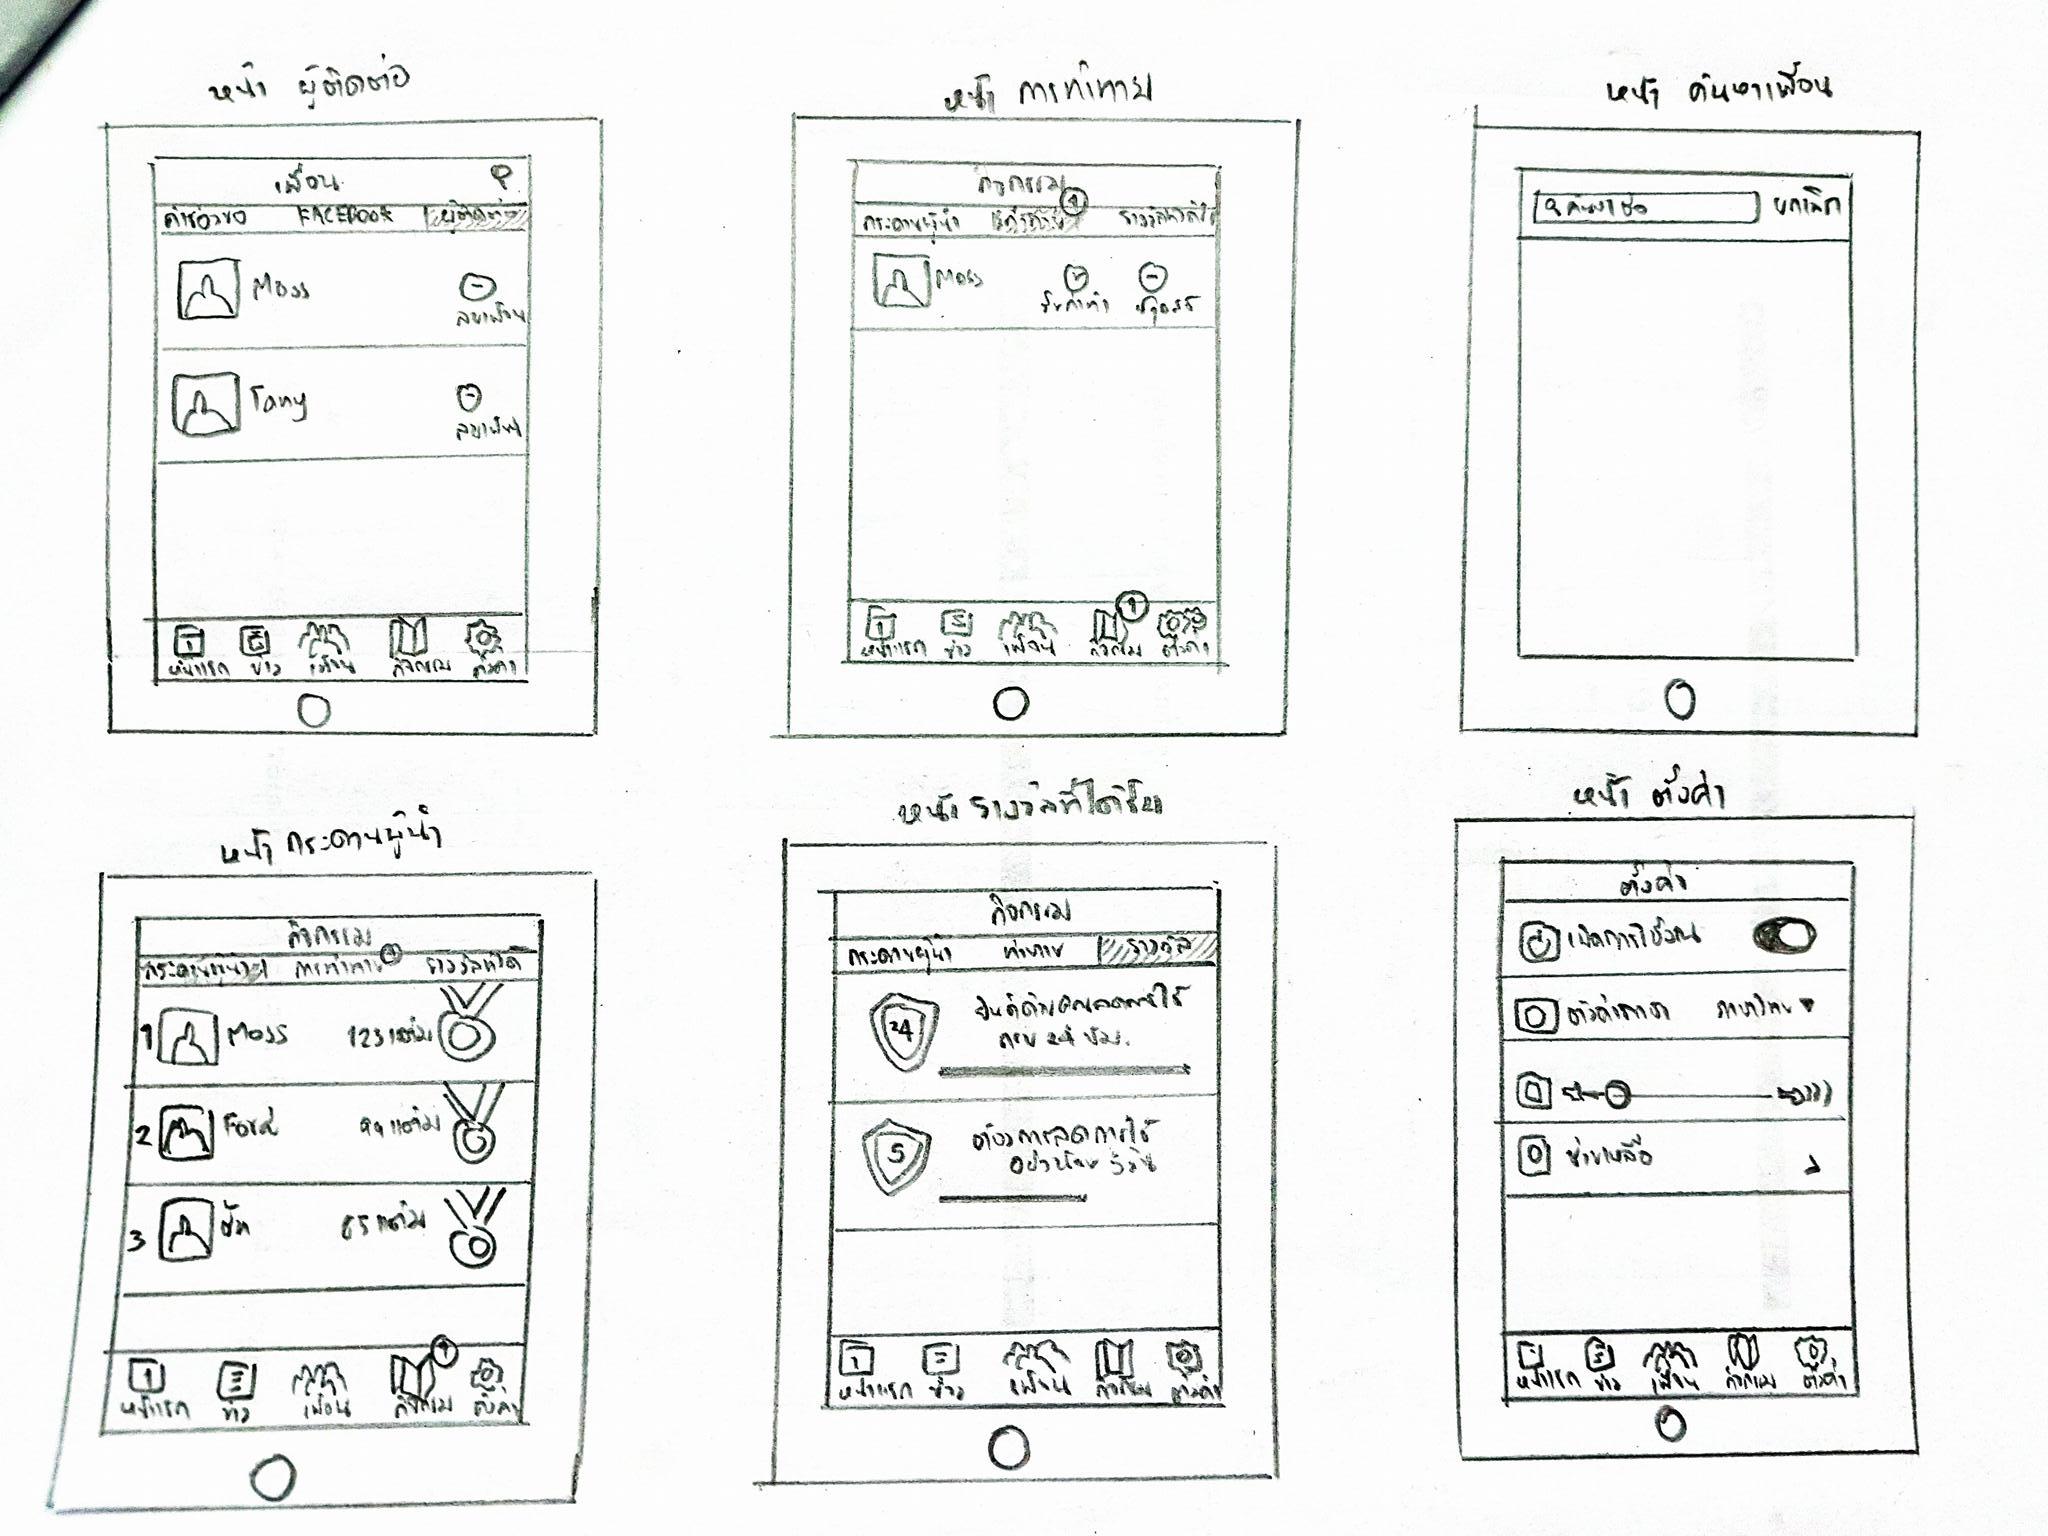 หน้า ผู้ติดต่อ
เพื่อน
คำร้องขอ FACEBOOK ผู้ติดต่อ
Moss
ลบเพื่อน
Tany
ลบเพื่อน
1
หน้าแรก ข่าว เพื่อน กิจกรรม ตั้งค่า
หน้า การท้าทาย
กิจกรรม
1
กระดานผู้นำ
Moss
รับคำท้า ปฏิเสธ
1
1
หน้าแรก ข่าว เพื่อน กิจกรรม ตั้งค่า
หน้า ค้นหาเพื่อน
ค้นหาชื่อ ยกเลิก
หน้า กระดานผู้นำ
กิจกรรม
1
กระดานผู้นำ การท้าทาย รางวัลที่ได้
1 Moss 123 แต้ม
2 Ford 99 แต้ม
3 85 แต้ม
1
1
หน้าแรก ข่าว เพื่อน กิจกรรม ตั้งค่า
หน้า รางวัลที่ได้รับ
กิจกรรม
กระดานผู้นำ ท้าทาย รางวัล
24
ยินดีด้วยคุณลดการใช้
ครบ 24 ชม.
5
ต้องการลดการใช้
อย่างน้อย 5 วัน
1
หน้าแรก ข่าว เพื่อน กิจกรรม ตั้งค่า
หน้า ตั้งค่า
ตั้งค่า
เปิดการใช้งาน
ภาษาไทย
ช่วยเหลือ
หน้าแรก ข่าว เพื่อน กิจกรรม ตั้งค่า